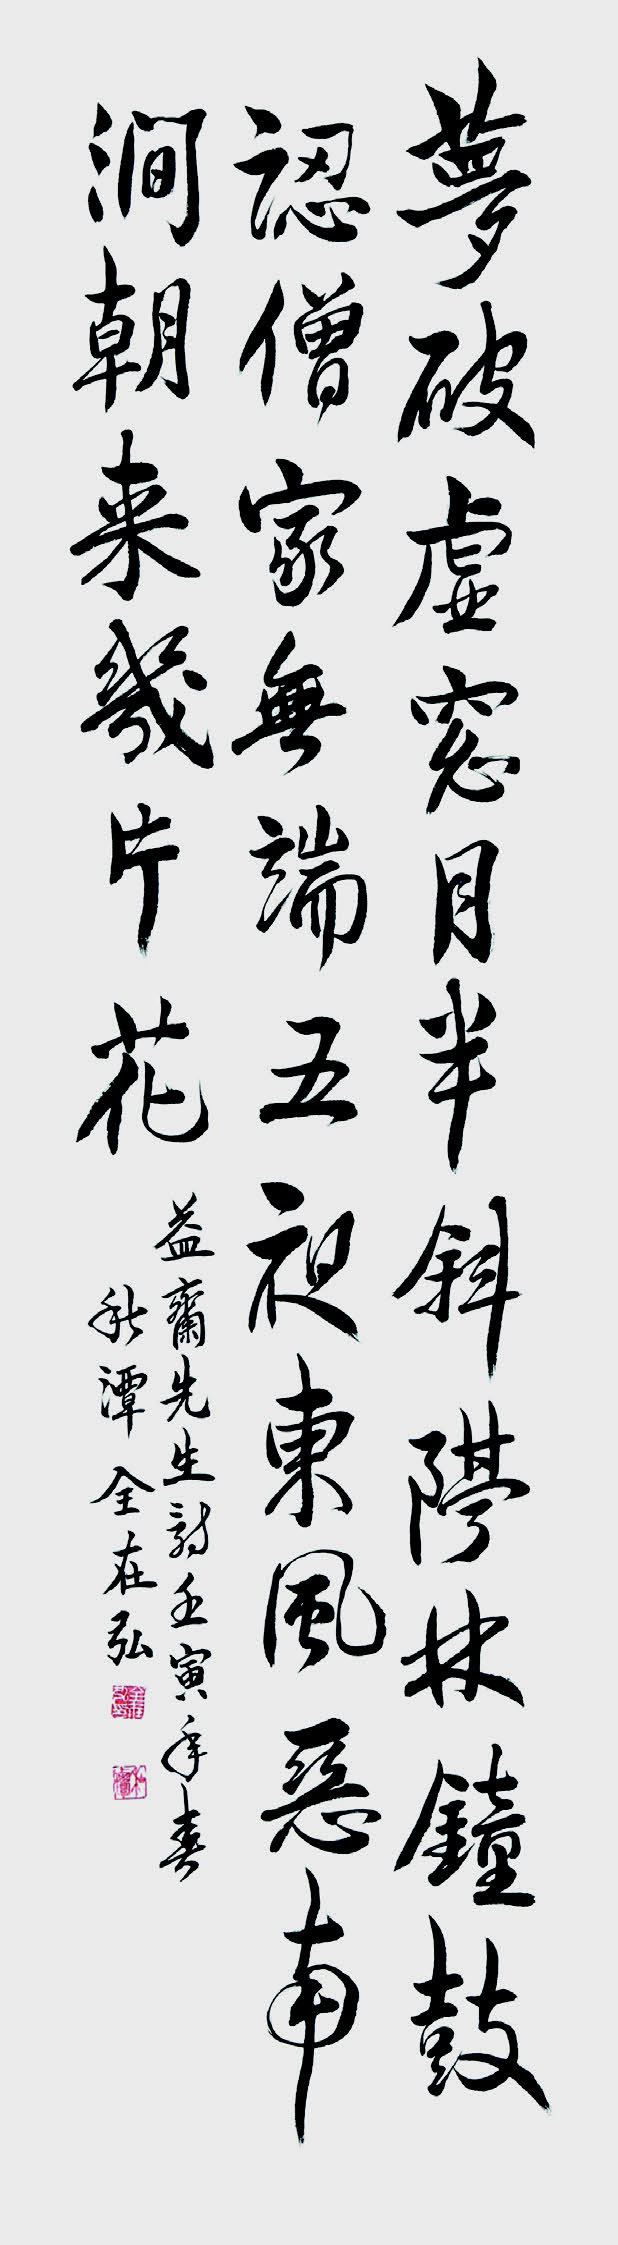 夢破虛窓月半斜隔林鐘鼓
認僧家無端五夜東風惡南
澗朝来幾片花
益齋先生詩壬寅年春
秋潭全在弘